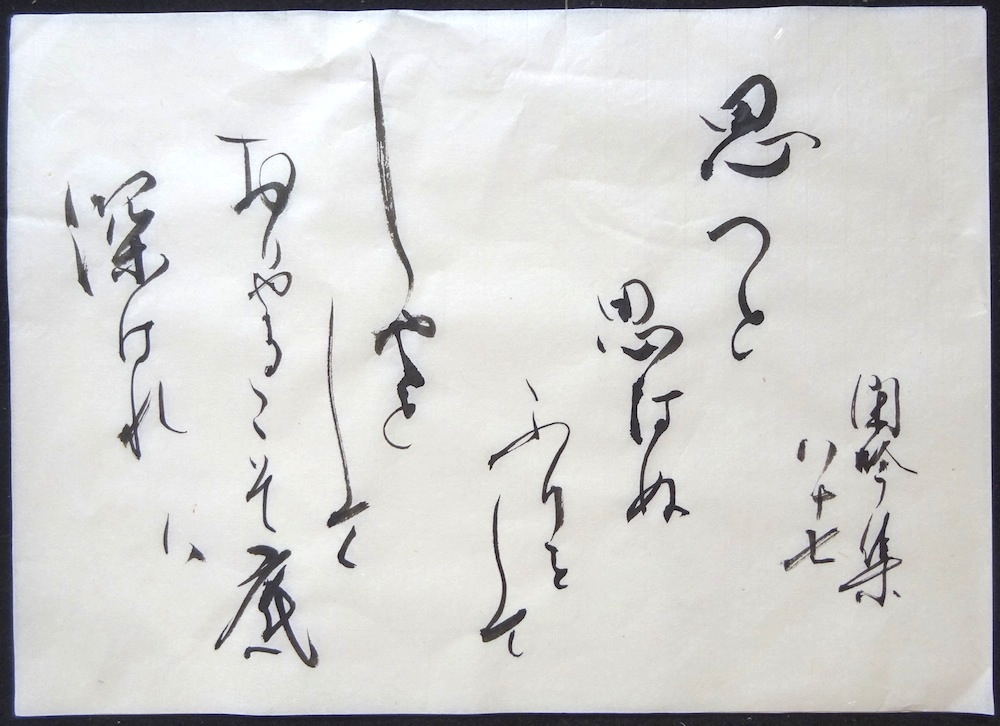 閑吟集
八十七
思へと
思はぬ
ふりをして
しやつと
して
おりやるこそ底
ハ
深けれ